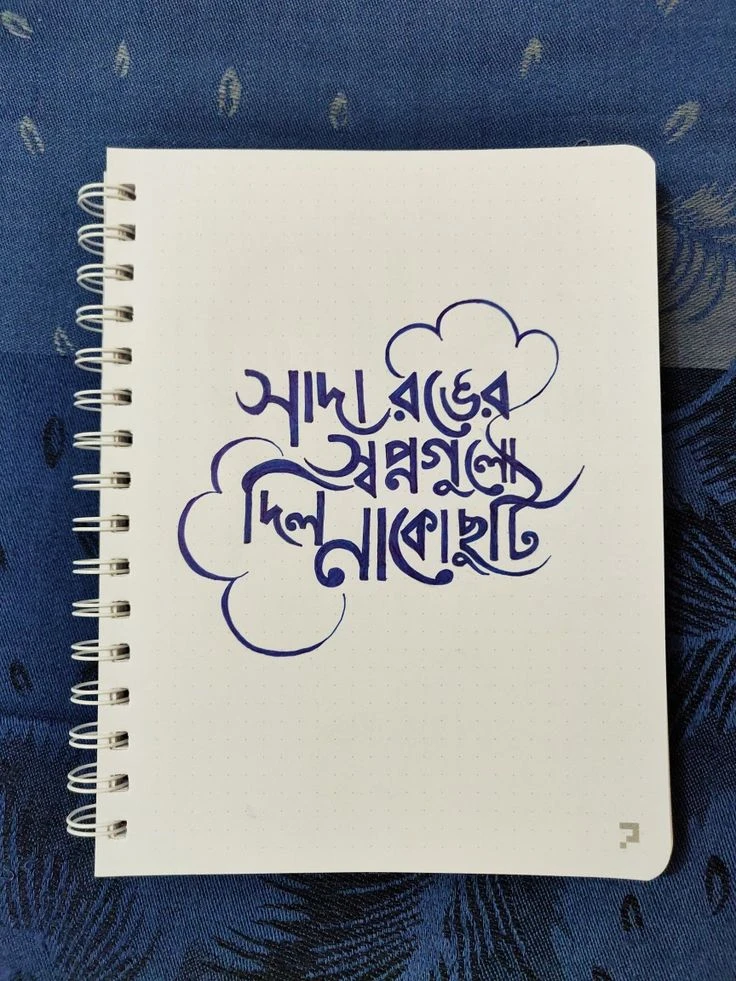 সাদা রঙের
স্বপ্নগুলো
দিল নাকো ছুটি